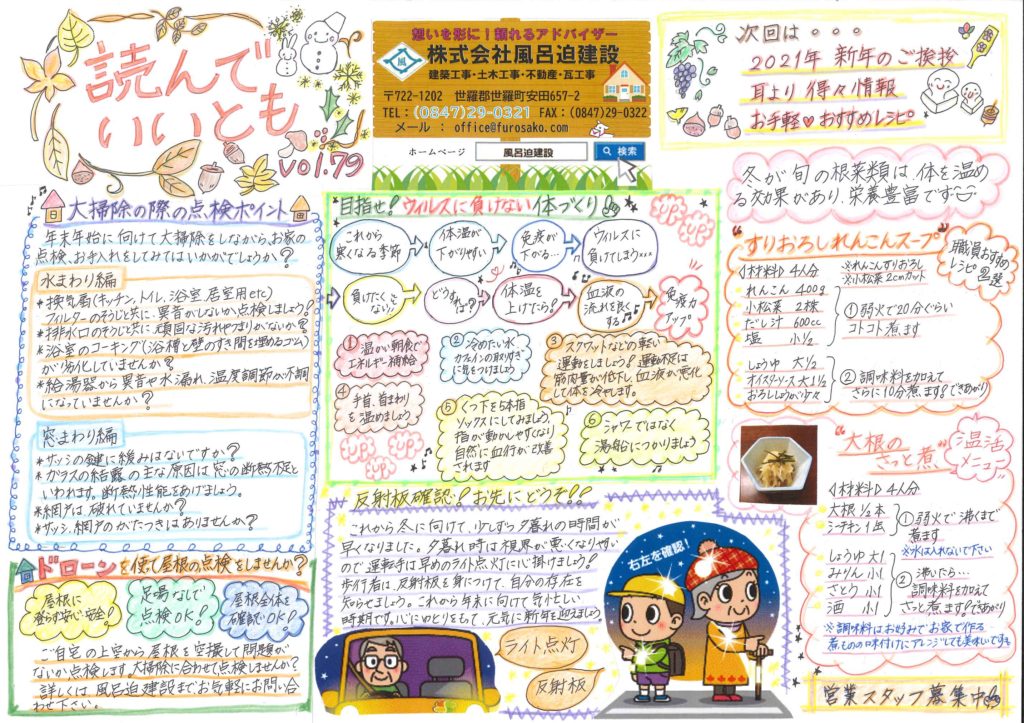 読んで
いいとも
vol.79
想いを形に！頼れるアドバイザー
株式会社風呂迫建設
建築工事・土木工事・不動産・瓦工事
〒722-1202 世羅郡世羅町安田657-2
TEL：(0847)29-0321 FAX：(0847)29-0322
メール ： office@furosako.com
ホームページ 風呂迫建設 検索
次回は・・・
2021年 新年のご挨拶
耳より 得々情報
お手軽♥おすすめレシピ
大掃除の際の点検ポイント
年末年始に向けて大掃除をしながら、お家の
点検、お手入れをしてみてはいかがでしょうか？
水まわり編
*換気扇(キッチン,トイル,浴室,居室用etc)
フィルターのそうじと共に、異音がしないか点検しましょう！
*排水口のそうじと共に頑固な汚れやつまりがないか？
*浴室のコーキング(浴槽と壁のすき間を埋めるゴム)
が劣化していませんか？
*給湯器から異音や水漏れ、温度調節が不調
になっていませんか？
窓まわり編
*サッシの鍵に緩みはないですか？
*ガラスの結露の主な原因は窓の断熱不足と
いわれます。断熱性能をあげましょう。
*網戸は破れていませんか？
*サッシ、網戸のがたつきはありませんか？
ドローンを使て屋根の点検をしませんか？
屋根に
登らず安心・安全！
足場なしで
点検OK！
屋根全体を
確認でOK！
ご自宅の上空から屋根を空撮して問題が
ないか点検します。大掃除に合わせて点検しませんか？
詳しくは風呂迫建設までお気軽にお問い合
わせ下さい。
目指せ！ウィルスに負けない体づくり
これから
寒くなる季節
体温が
下がりやすい
免疫が
下がる…
ウィルスに
負けてしまう×××
負けたく
ない！
どうすれば？
体温を
上げたら！
血液の
流れを良くする
免疫力
アップ
① 温かい朝食で
エネルギー補給
② 冷めたい水
カフェインの取りすぎ
に気をつけましょう
③ スクワットなどの軽い
運動をしましょう！運動不足は
筋肉量が低下し、血液が悪化
して体を冷やします。
④ 手首、首まわり
を温めましょう
⑤ くつ下を5本指
ソックスにしてみましょう
指が動かしやすくなり
自然に血行が改善
されます
⑥ シャワーではなく
湯船につかりましょう
反射板確認！お先にどうぞ！！
これから冬に向けて、少しずつ夕暮れの時間が
早くなりました。夕暮れ時は視界が悪くなりやすい
ので運転手は早めのライト点灯を心掛けましょう！
歩行者は、反射板を身につけて、自分の存在を
知らせましょう。これから年末に向けて気忙しい
時期です。心にゆとりをもって、元気に新年を迎えましょう
ライト点灯
反射板
右左を確認！
冬が旬の根菜類は、体を温め
る効果があり、栄養豊富です
"すりおろしれんこんスープ"
職員おすすめ
レシピ2選
材料 4人分
※れんこんすりおろし
※小松菜2cmカット
れんこん 400g
小松菜 2株
だし汁 600cc
塩 小½
①弱火で20分ぐらい
コトコト煮ます
しょうゆ 大½
オイスターソース大1½
おろししょうが少々
②調味料を加えて
さらに10分煮ます！できあがり
"大根の
さっと煮"
温活
メニュー
材料 4人分
大根 ½本
シーチキン1缶
①弱火で沸くまで
煮ます
※水は入れないで下さい
しょうゆ 大1
みりん 小1
さとう 小1
酒 小1
②沸いたら…
調味料を加えて
さっと煮ます！できあがり
※調味料はお好みでお家で作る
煮ものの味付けにアレンジしても美味しいですよ
営業スタッフ募集中